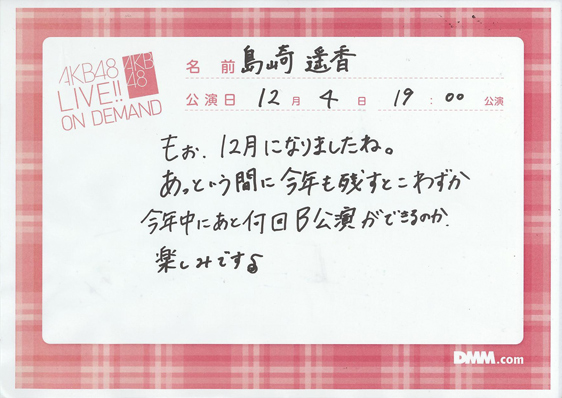 AKB48
LIVE!!
ON DEMAND
AKB
48
名前 島崎 遥香
公演日 12月 4日 19:00 公演
もぉ、12月になりましたね。
あっという間に今年も残すとこわずか
今年中にあと何回B公演ができるのか、
楽しみです♪
DMM.com